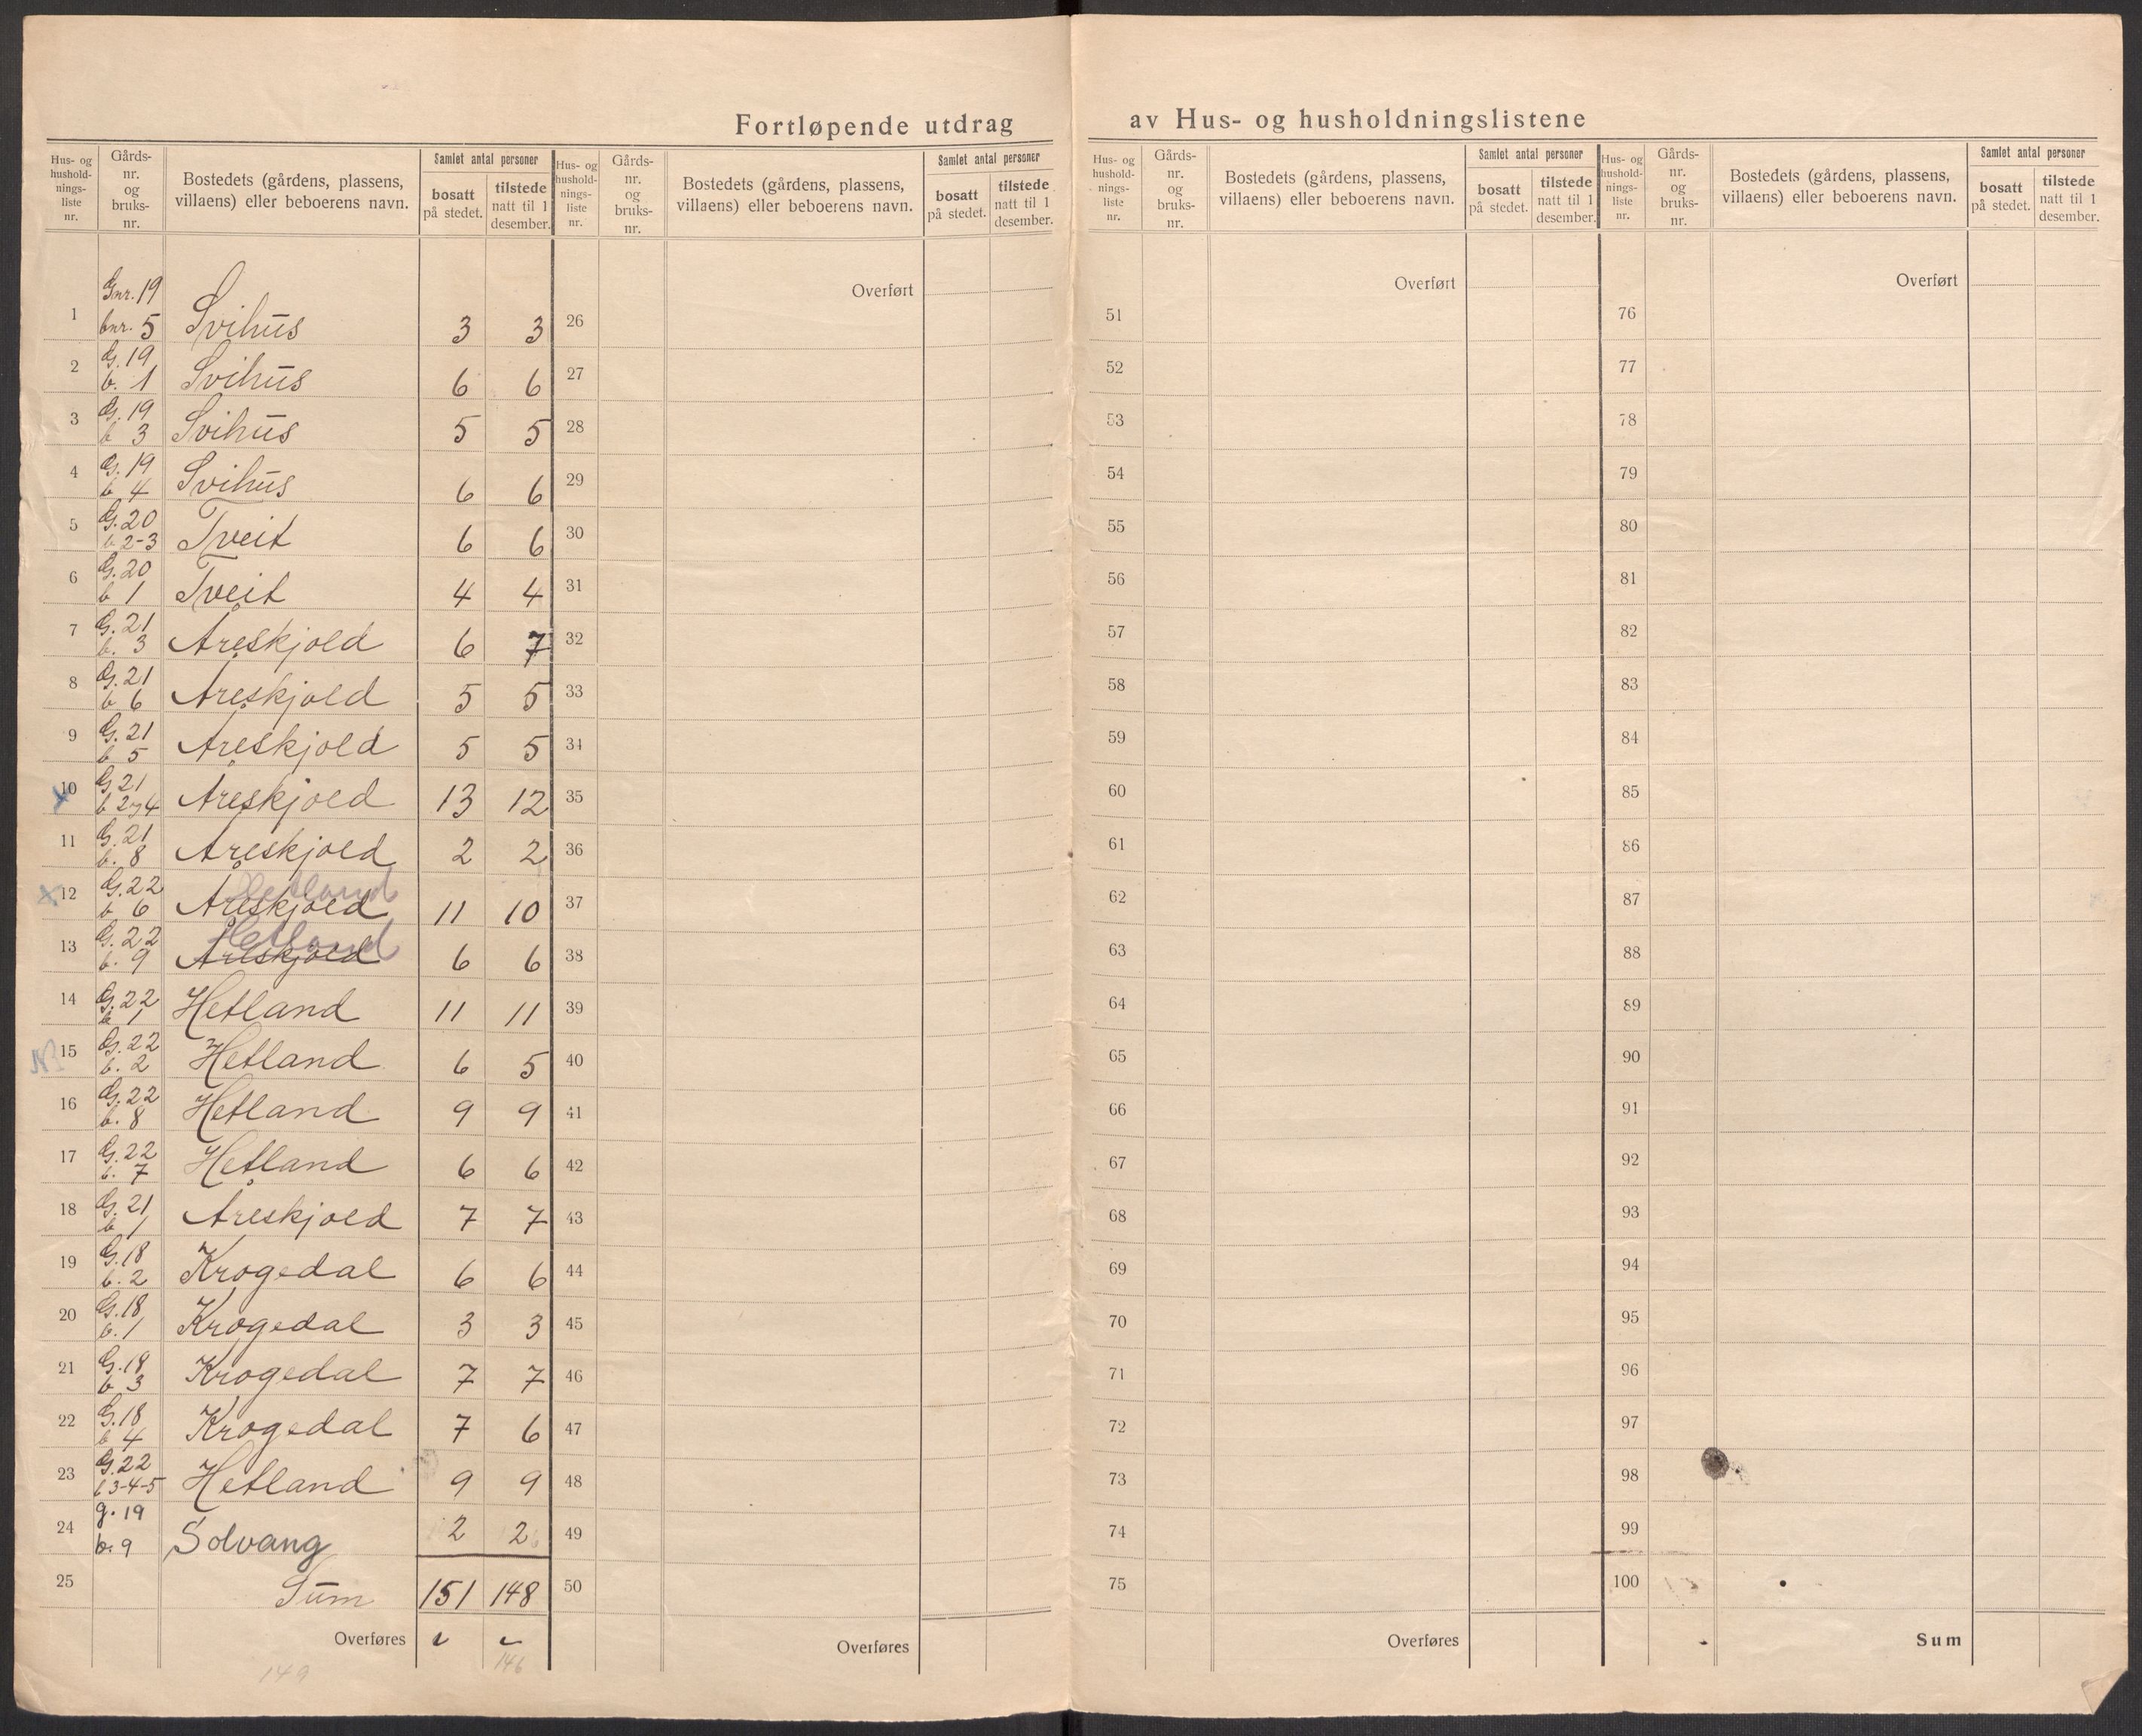 Fortløpende utdrag av Hus- og husholdningslistene
Hus- og hushold-nings-liste nr. Gårds-nr. og bruks-nr. Bostedets (gårdens, plassens, villaens) eller beboerens navn. Samlet antal personer bosatt på stedet. tilstede natt til 1 desember.
Hus- og hushold-nings-liste nr. Gårds-nr. og bruks-nr. Bostedets (gårdens, plassens, villaens) eller beboerens navn. Samlet antal personer bosatt på stedet. tilstede natt til 1 desember.
Hus- og hushold-nings-liste nr. Gårds-nr. og bruks-nr. Bostedets (gårdens, plassens, villaens) eller beboerens navn. Samlet antal personer bosatt på stedet. tilstede natt til 1 desember.
Hus- og hushold-nings-liste nr. Gårds-nr. og bruks-nr. Bostedets (gårdens, plassens, villaens) eller beboerens navn. Samlet antal personer bosatt på stedet. tilstede natt til 1 desember.
Overført Overført Overført
1 Gnr. 19 bnr. 5 Svihūs 3 3 26 51 76
2 G. 19 b. 1 Svihūs 6 6 27 52 77
3 G. 19 b 3 Svihūs 5 5 28 53 78
4 G. 19 b 4 Svihūs 6 6 29 54 79
5 G. 20 b 2-3 Tveit 6 6 30 55 80
6 G. 20 b 1 Tveit 4 4 31 56 81
7 G. 21 b. 3 Åreskjold 6 7 32 57 82
8 G. 21 b 6 Åreskjold 5 5 33 58 83
9 G. 21 b 5 Åreskjold 5 5 34 59 84
10 G 21 b 2 og 4 Åreskjold 13 12 35 60 85
11 G. 21 b. 8 Åreskjold 2 2 36 61 86
12 G. 22 b 6 Åreskjold Hetland 11 10 37 62 87
13 G. 22 b. 9 Åreskjold Hetland 6 6 38 63 88
14 G. 22 b 1 Hetland 11 11 39 64 89
15 G. 22 b. 2 Hetland 6 5 40 65 90
16 G. 22 b. 8 Hetland 9 9 41 66 91
17 G. 22 b. 7 Hetland 6 6 42 67 92
18 G. 21 b 1 Åreskjold 7 7 43 68 93
19 G. 18 b. 2 Krogedal 6 6 44 69 94
20 G. 18 b. 1 Krogedal 3 3 45 70 95
21 G. 18 b 3 Krogedal 7 7 46 71 96
22 G. 18 b 4 Krogedal 7 6 47 72 97
23 G. 22 b 3-4-5 Hetland 9 9 48 73 98
24 g. 19 b. 9 Solvang 2 2 49 74 99
25 Sūm 151 148 50 75 100
Overføres Overføres Overføres Sum
146
149